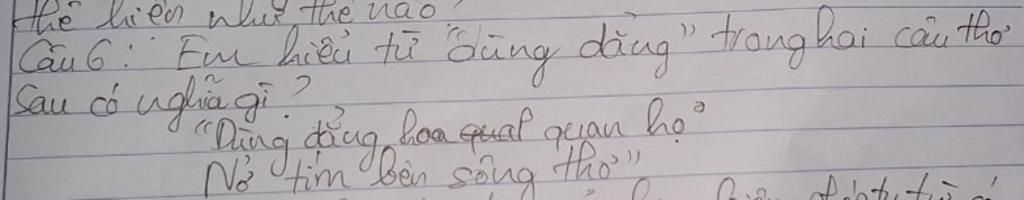 thể hiện như thế nào?
Câu 6: Em hiểu từ "dùng dằng" trong hai câu thơ
sau có nghĩa gì?
"Dùng dằng hoa quan họ
Nở tím bên sông thơ"